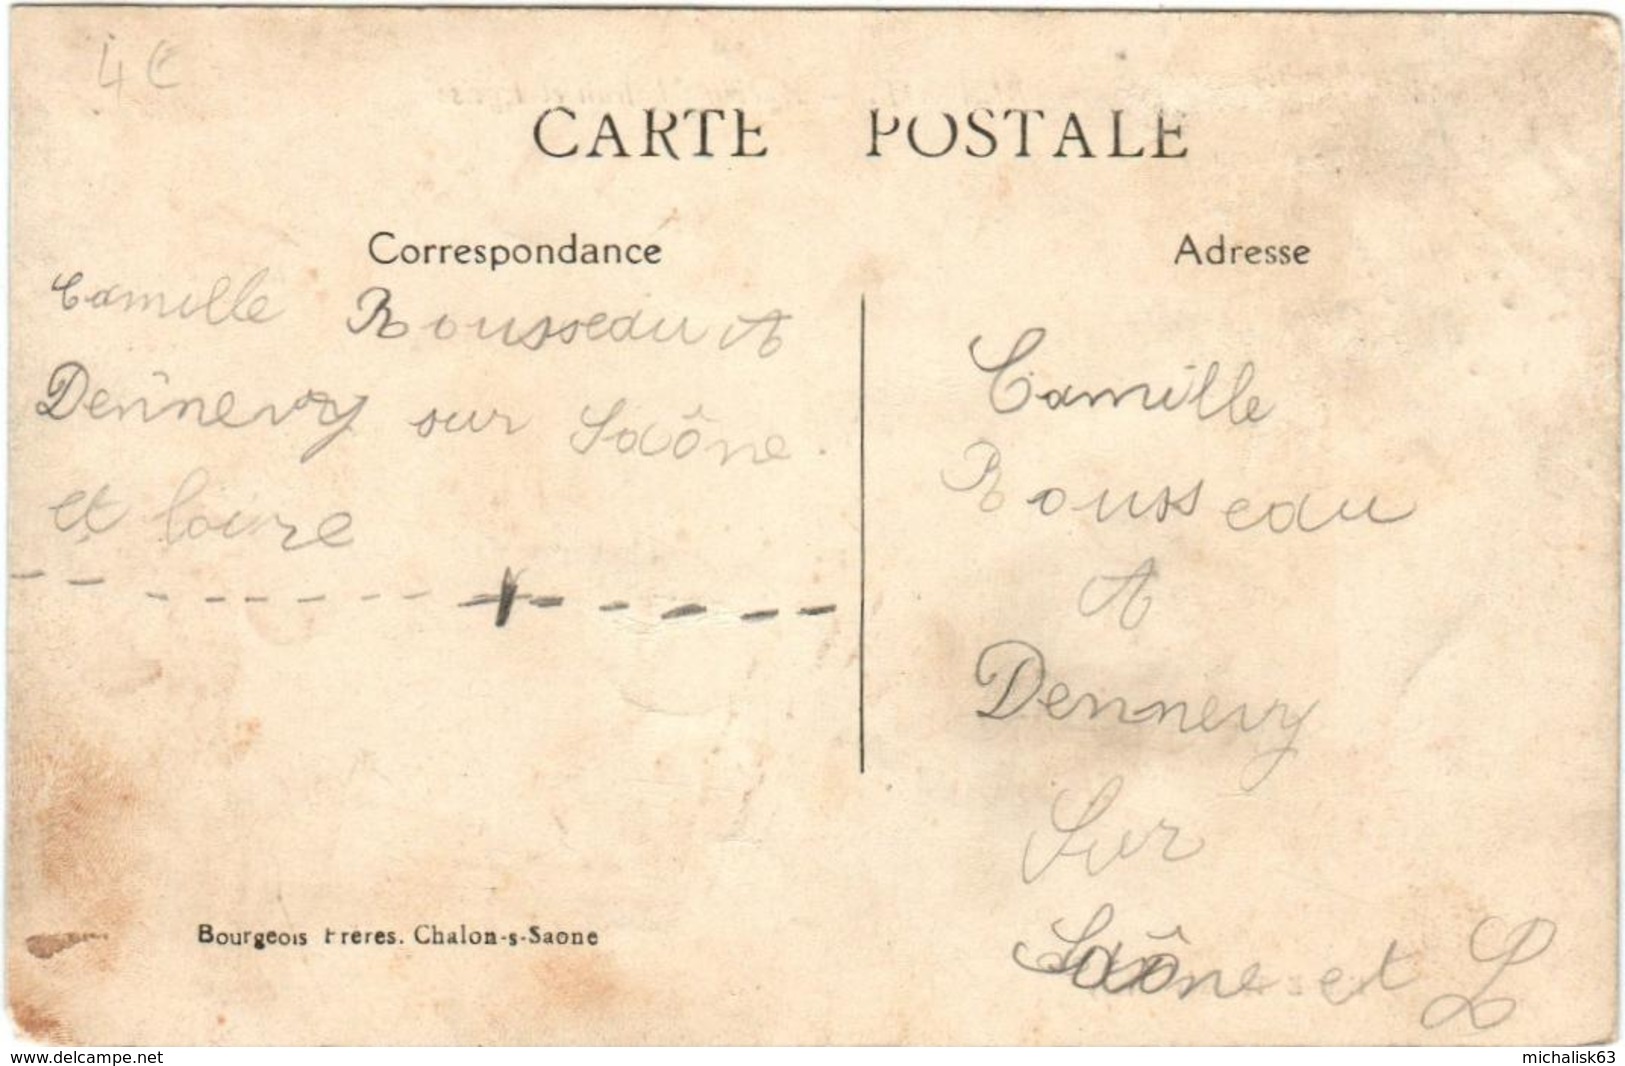 4 €
CARTE POSTALE
Correspondance
Camille Rousseau A
Dennevy sur Saône
et loire
Adresse
Camille
Rousseau
A
Dennevy
Sur
Saône et L
Bourgeois Frères. Chalon-s-Saone
www.delcampe.net
michalisk63